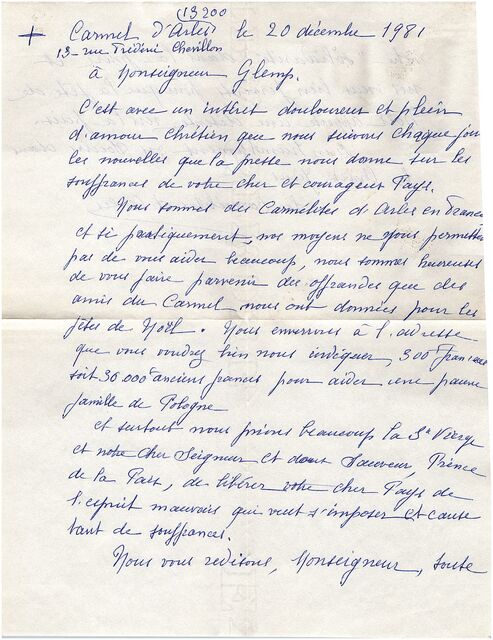 (13200)
+ Carmel d'Arles le 20 décembre 1981
13 - rue Frédéric Chevillon
à Monseigneur Glemp.
C'est avec un intérêt douloureux et plein
d'amour chrétien que nous suivons chaque jour
les nouvelles que la presse nous donne sur les
souffrances de votre cher et courageux Pays.
Nous sommes des Carmélites d'Arles en France
et si pratiquement, nos moyens ne nous permettent
pas de vous aider beaucoup, nous sommes heureuses
de vous faire parvenir des offrandes que des
amis du Carmel nous ont données pour les
fêtes de Noël. Nous enverrons à l'adresse
que vous voudrez bien nous indiquer, 300 francs
soit 30.000 anciens francs pour aider une pauvre
famille de Pologne
et surtout nous prions beaucoup la Ste Vierge
et notre cher Seigneur et doux Sauveur, Prince
de la Paix, de libérer votre cher Pays de
l'esprit mauvais qui veut s'imposer et cause
tant de souffrances.
Nous vous redisons, Monseigneur, toute